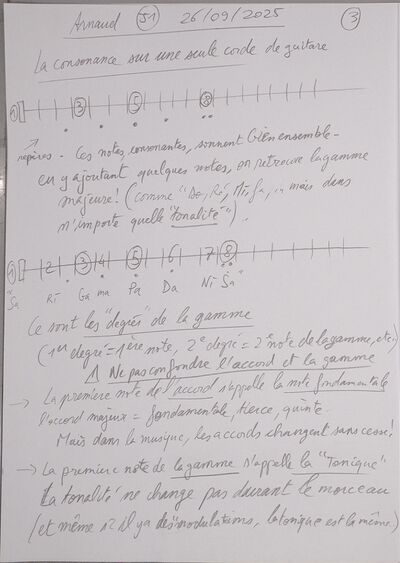 Arnaud 51 26/09/2025 3
La consonance sur une seule corde de guitare
1 3 5 8
repères. Ces notes, consonantes, sonnent bien ensemble -
en y ajoutant quelques notes, on retrouve la gamme
majeure! (comme "Do, Ré, Mi, Fa, ... mais dans
n'importe quelle "tonalité").
1 2 3 4 5 6 7 8
"Sa Ri Ga ma Pa Da Ni Sa"
Ce sont les "degrés" de la gamme
(1er degré = 1ère note, 2e degré = 2e note de la gamme, etc.)
Ne pas confondre l'accord et la gamme
→ La première note de l'accord s'appelle la note fondamentale
l'accord majeur = fondamentale, tierce, quinte.
Mais dans la musique, les accords changent sans cesse!
→ La première note de la gamme s'appelle la "Tonique"
La tonalité ne change pas durant le morceau
(et même s'il y a des "modulations", la tonique est la même)